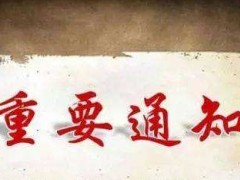 重要通知